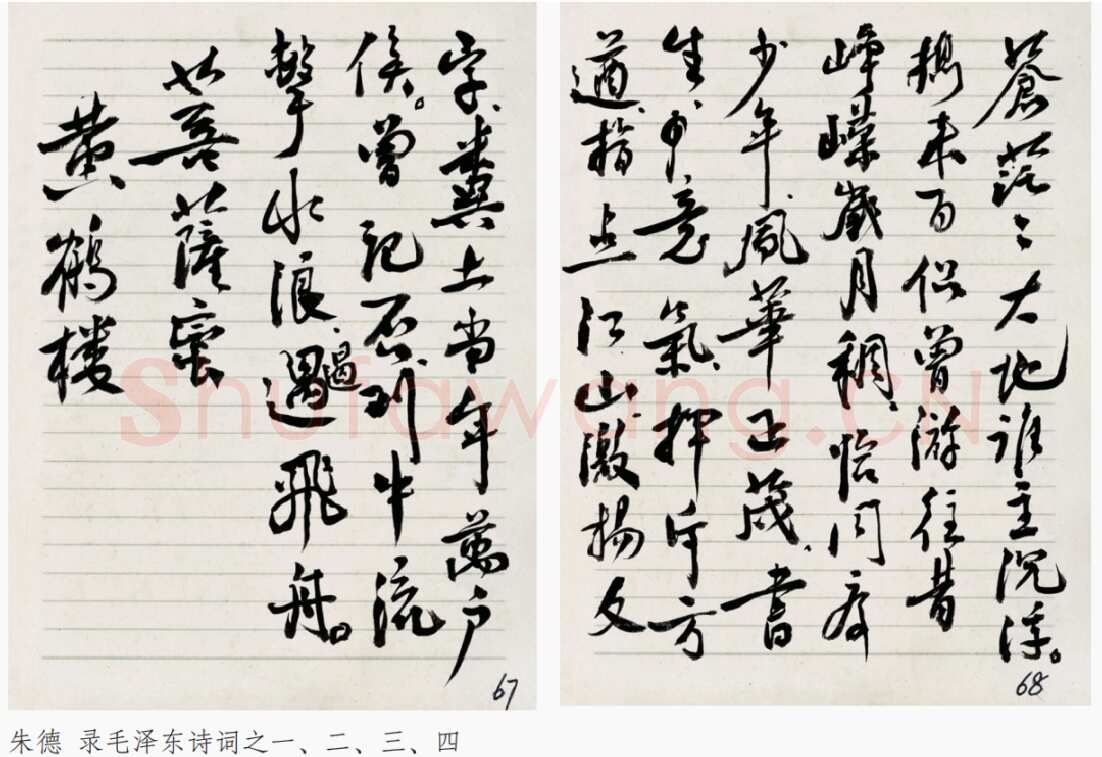 蒼茫々大地誰主沉浮。
携来百侣曾游往昔
崢嶸歲月稠、恰同学
少年、風華正茂、書
生意氣、揮斥方
遒、指点江山激揚文
68
字、糞土當年萬户
侯。曾記否、到中流
擊水、浪遏飛舟。
遏
菩薩蛮
黄鶴楼
67
朱德 录毛泽东诗词之一、二、三、四
Shufawang.CN